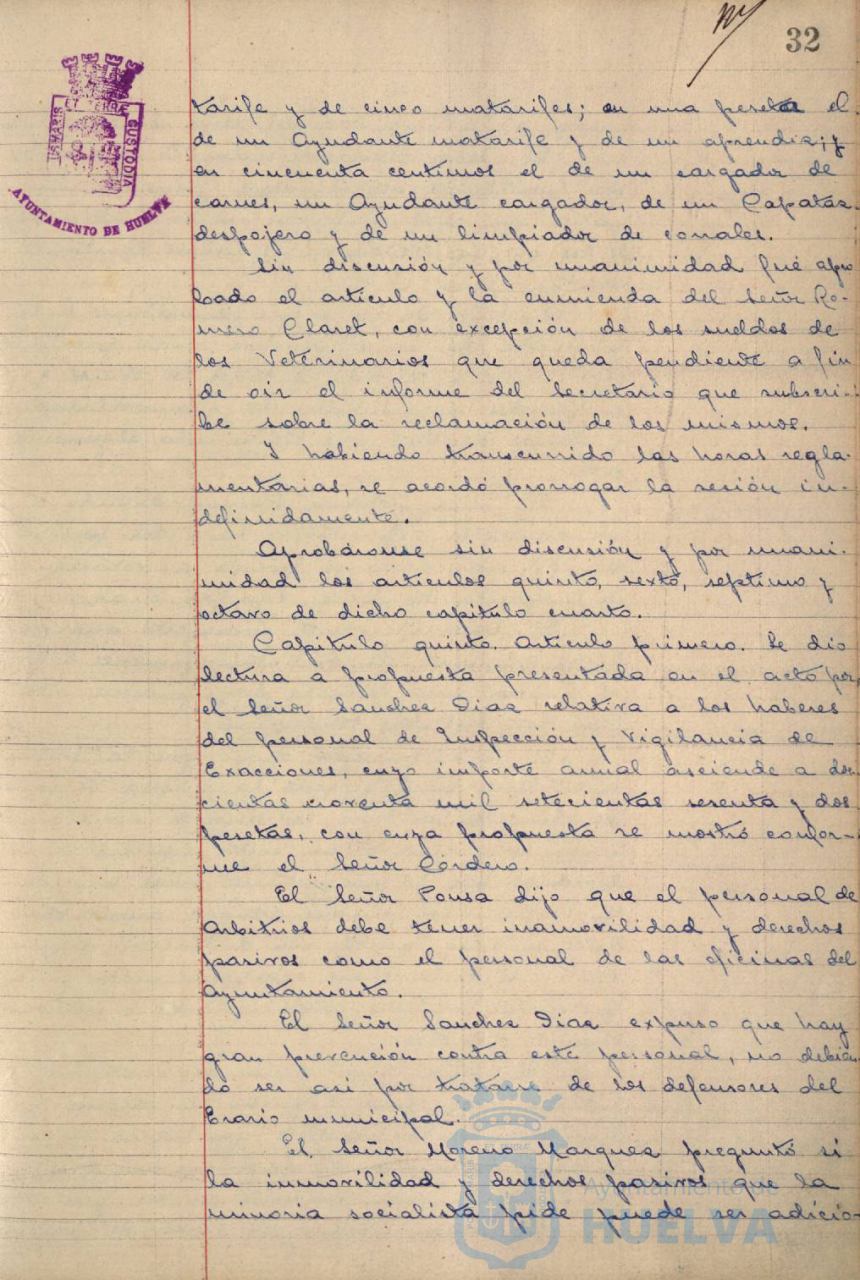 32
tarife y de cinco matarifes; en una peseta el
de un Ayudante matarife y de un aprendiz; y
en cincuenta centimos el de un cargador de
carnes, un Ayudante cargador, de un Capataz
despojero y de un limpiador de corrales.
Sin discusión y por unanimidad fué apro
bado el articulo y la enmienda del Señor Ro-
mero Claret, con excepción de los sueldos de
los Veterinarios que queda pendiente a fin
de oir el informe del Secretario que subscri-
be sobre la reclamación de los mismos.
Y habiendo transcurrido las horas regla-
mentarias, se acordó prorrogar la sesión in-
definidamente.
Aprobáronse sin discusión y por unani-
midad los articulos quinto, sexto, septimo y
octavo de dicho capitulo cuarto.
Capitulo quinto. Articulo primero. Se dio
lectura a propuesta presentada en el acto por
el Señor Sanchez Diaz relativa a los haberes
del personal de Inspección y Vigilancia de
Exacciones, cuyo importe anual asciende a dos
cientas noventa mil setecientas sesenta y dos
pesetas, con cuya propuesta se mostró confor-
me el Señor Cordero.
El Señor Ponsa dijo que el personal de
Arbitrios debe tener inamovilidad y derechos
pasivos como el personal de las oficinas del
Ayuntamiento.
El Señor Sanchez Diaz expuso que hay
gran prevención contra este personal, no debien
do ser asi por tratarse de los defensores del
Erario municipal.
El Señor Moreno Marquez preguntó si
la inmovilidad y derechos pasivos que la
minoria socialista pide puede ser adicio-
PORTUS MARIS ET TERRÆ CUSTODIA
AYUNTAMIENTO DE HUELVA
Ayuntamiento de
HUELVA